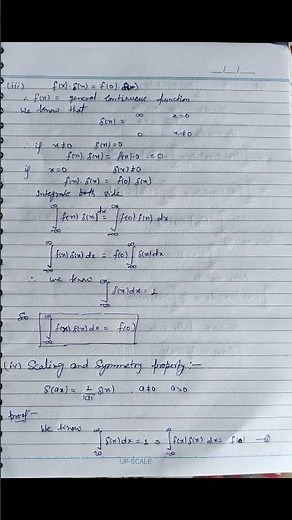 (iii) f(x). δ(x) = f(0). δ(x)
∴ f(x) = general continuous function
We know that
δ(x) = ∞ x=0
0 x≠0
∴ if x≠0 δ(x)=0
f(x). δ(x) = f(x).0 = 0
if x=0 δ(x)≠0
f(x). δ(x) = f(0) δ(x)
Integrate both side
∫_{-∞}^{∞} f(x) δ(x) dx = ∫_{-∞}^{∞} f(0) δ(x) dx
∫_{-∞}^{∞} f(x) δ(x) dx = f(0) ∫_{-∞}^{∞} δ(x) dx
∴ we know
∫_{-∞}^{∞} δ(x) dx = 1
So ∫_{-∞}^{∞} f(x) δ(x) dx = f(0)
(iv) Scaling and Symmetry property :-
δ(ax) = 1/|a| δ(x) . a≠0 a>0
proof -
We know
∫_{-∞}^{∞} δ(x) dx = 1 , ∫_{-∞}^{∞} f(x) δ(x) dx = f(0)
UP-SCALE